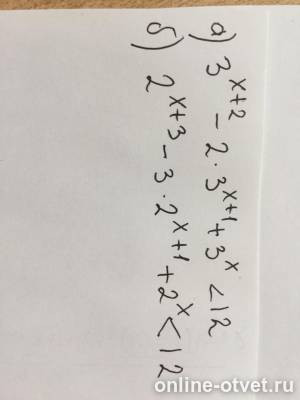 а) 3^{x+2} - 2 · 3^{x+1} + 3^x < 12
б) 2^{x+3} - 3 · 2^{x+1} + 2^x < 12
online-otvet.ru